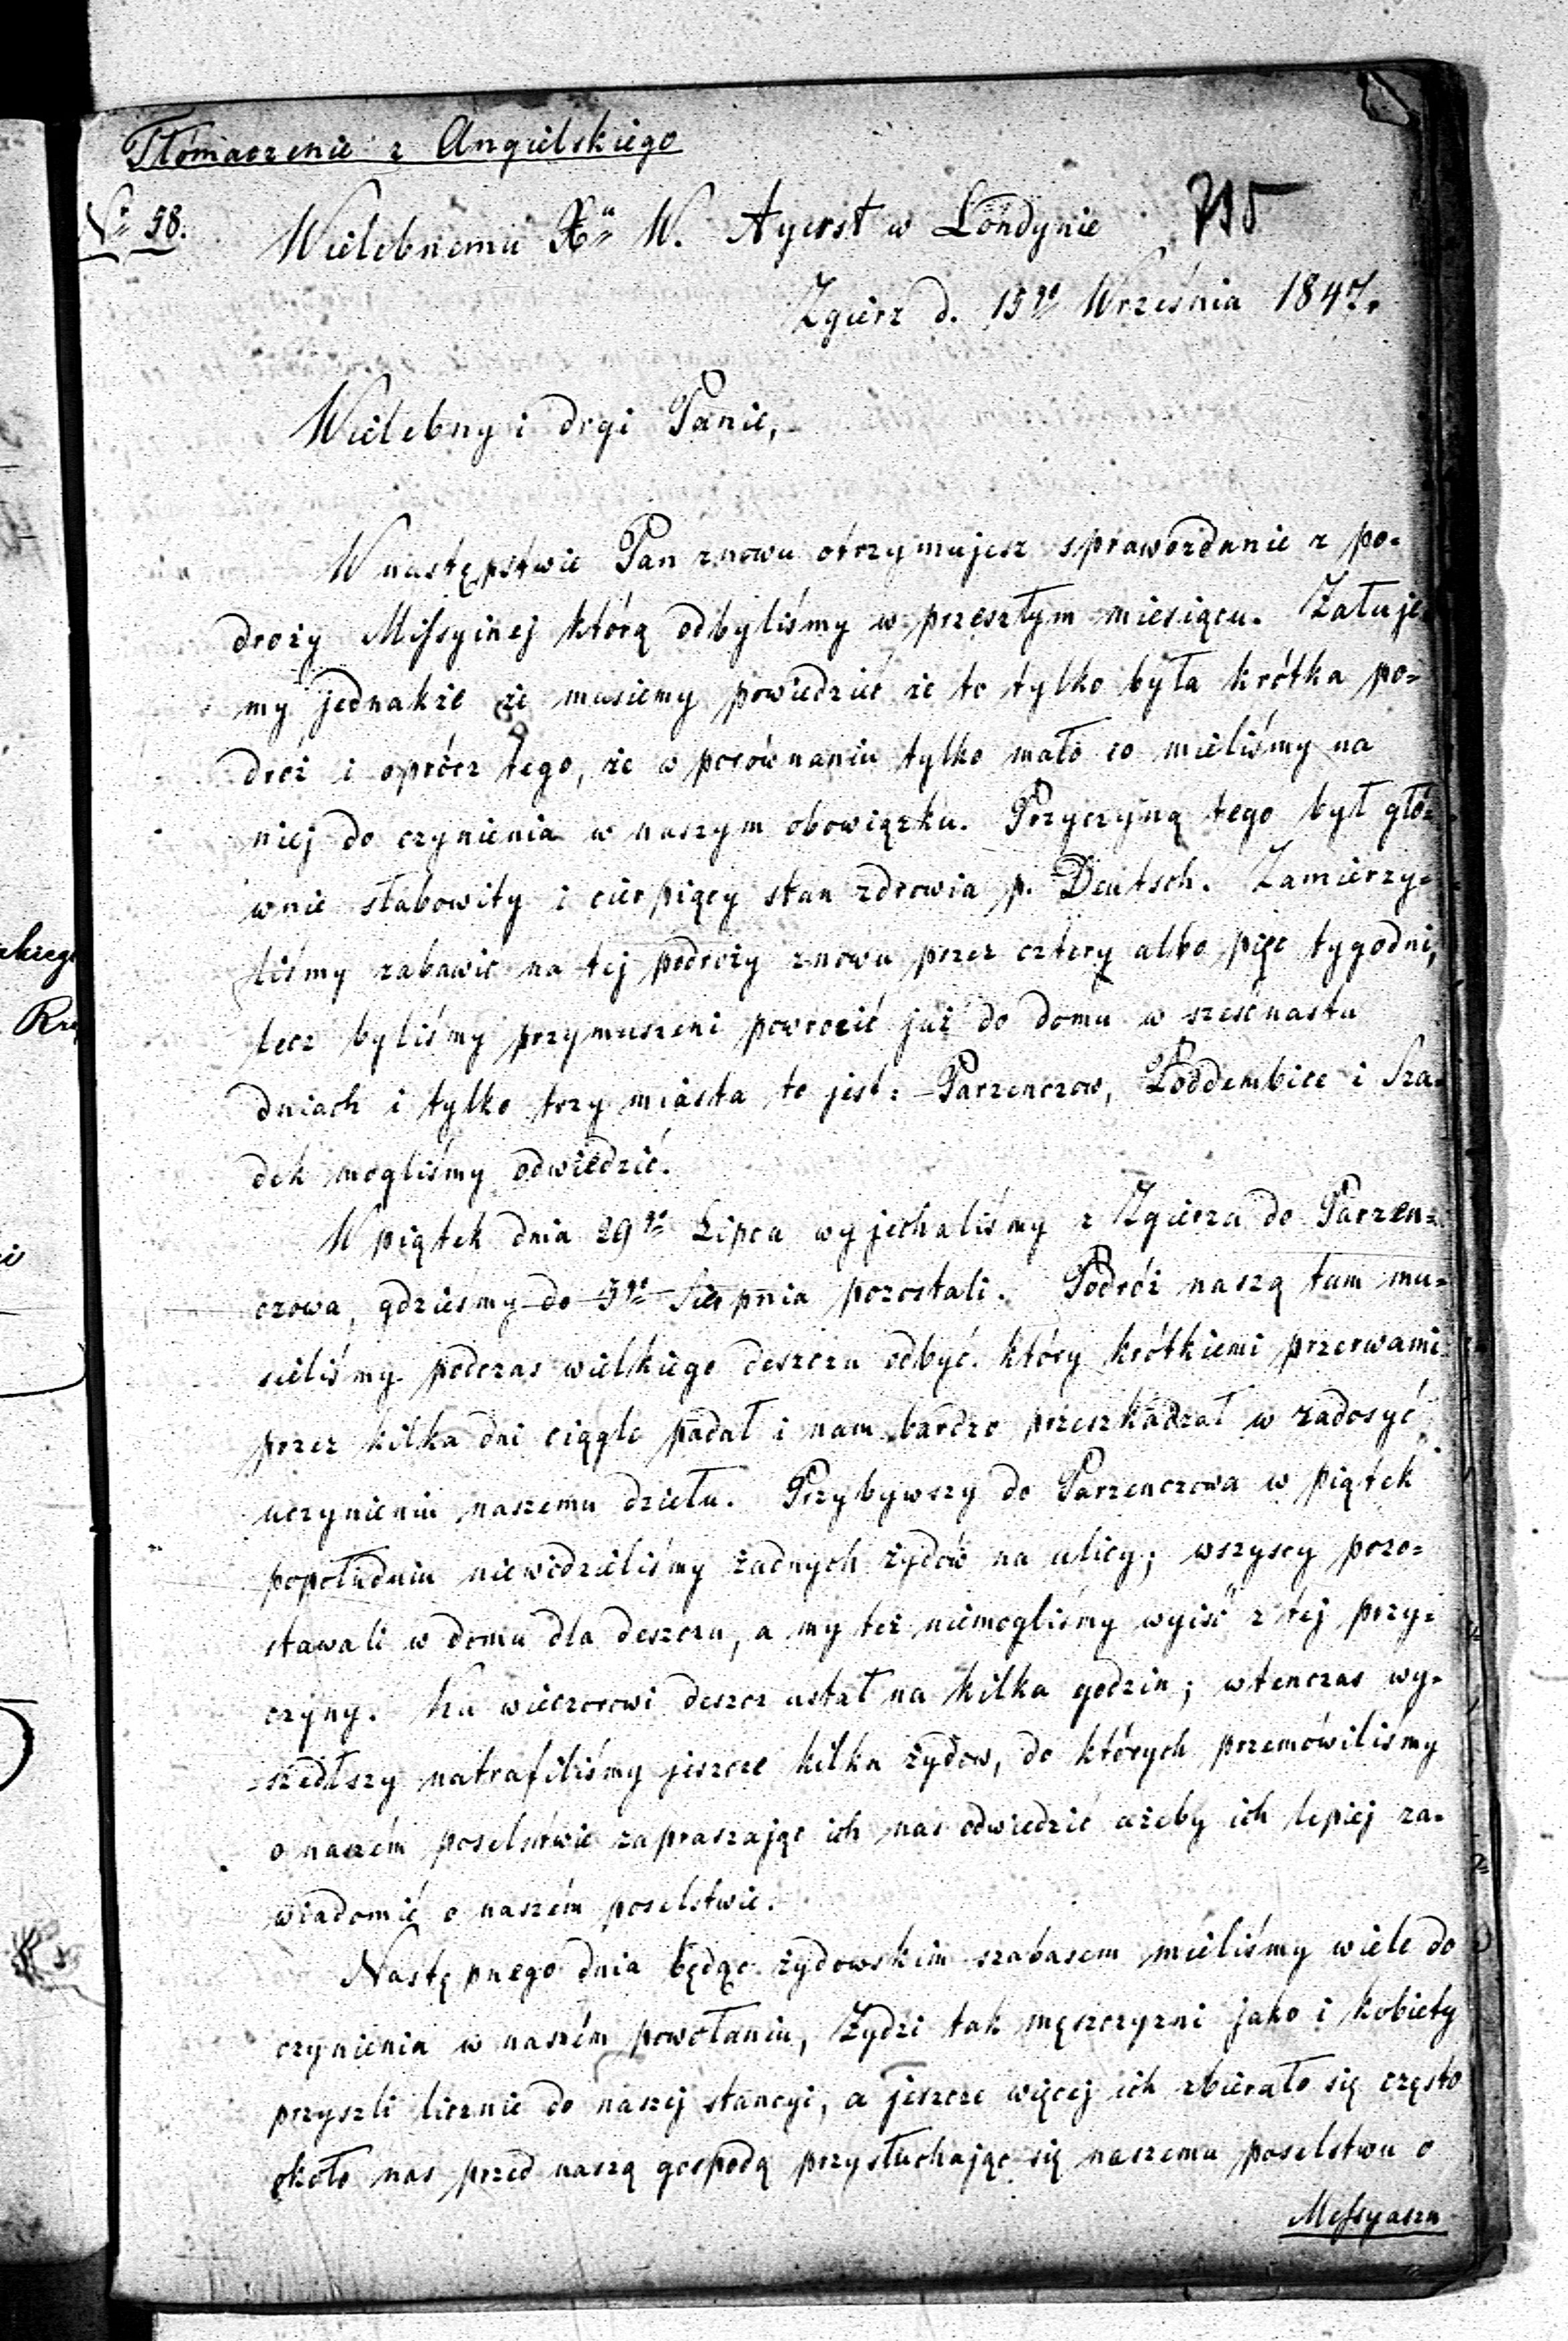 Tłómaczenie z Angielskiego
No 58.
Wielebnemu Xu W. Ayerst w Londynie
715
Zgierz d. 15go Września 1847.
Wielebny i drgi Panie,
W następstwie Pan znowu otrzymujesz sprawozdanie z po=
droży Missyinej którą odbyliśmy w przeszłym miesiącu. Żałuje=
my jednakże że musiemy powiedzieć że to tylko była krótka po=
dróż i oprócz tego, że w porównaniu tylko mało co mieliśmy na
niej do czynienia w naszym obowiązku. Przyczyną tego był głó=
wnie słabowity i cierpiący stan zdrowia p. Deutsch. Zamierzy=
liśmy zabawić na tej podroży znowu przez cztery albo pięc tygodni,
lecz byliśmy przymuszeni powrocić już do domu w sześcnastu
dniach i tylko trzy miasta to jest: Parzenczow, Poddembice i Sza=
dek mogliśmy odwiedzić.
W piątek dnia 29go Lipca wyjechaliśmy z Zgierza do Parzen=
czowa, gdzieśmy do 5go Sierpnia pozostali. Podróż naszą tam mu=
sieliśmy podczas wielkiego deszczu odbyć. który krótkiemi przerwami
przez kilka dni ciągle padał i nam bardzo przeszkadzał w zadosyć
uczynieniu naszemu dziełu. Przybywszy do Parzenczowa w piątek
popołudniu niewidzieliśmy żadnych żydów na ulicy; wszyscy pozo=
stawali w domu dla deszczu, a my też niemogliśmy wyiść z tej przy=
czyny. Ku wieczorowi deszcz ustał na kilka godzin; wtenczas wy=
szedłszy natrafiliśmy jeszcze kilka żydow, do których przemówiliśmy
o naszém poselstwie zapraszając ich nas odwiedzić ażeby ich lepiej za=
wiadomić o naszém poselstwie.
Następnego dnia będąc żydowskim szabasem mieliśmy wiele do
czynienia w naszém powołaniu, Żydzi tak męszczyzni jako i kobiety
przyszli licznie do naszej stancyi, a jeszcze więcej ich zbierało się często
około nas przed naszą gospodą przysłuchając się naszemu poselstwu o
Messyaszu